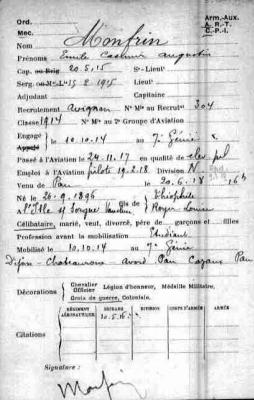 Ord.
Mec.
Arm.-Aux.
A. R. T.
C.-P. I.
Nom Monfrin
Prénoms Emile Casimir Augustin
Cap. ou Brig 20.5.15 S-Lieut
Serg. ou M.-L. 15.2.1915 Lieut
Adjudant Capitaine
Recrutement Avignon N° Mle au Recrutt 304
Classe 1914 N° Mle au 2e Groupe d'Aviation
Engagé le 10.10.14 au 7e Génie
Appelé
Passé à l'Aviation le 24.11.17 en qualité de élev pil
Emploi à l'Aviation pilote 19.2.18 Division N
Venue de Pau le 20.6.18
Né le 26.9.1896 fils de Théophile
à l'Isle s/ Sorgue Vaucluse et de Roger Louise
Célibataire, marié, veuf, divorcé, père de garçons et filles
Profession avant la mobilisation Etudiant
Mobilisé le 10.10.14 au 7e Génie
Dijon - Chateauroux Avord Pau Cazaux Pau
Décorations
Chevalier
Officier
Légion d'honneur, Médaille Militaire,
Croix de guerre, Coloniale.
Citations
RÉGIMENT
AÉRONAUTIQUE
DIVISION
CORPS D'ARMÉE
ARMÉE
20.5.16
Signature :
Monfrin